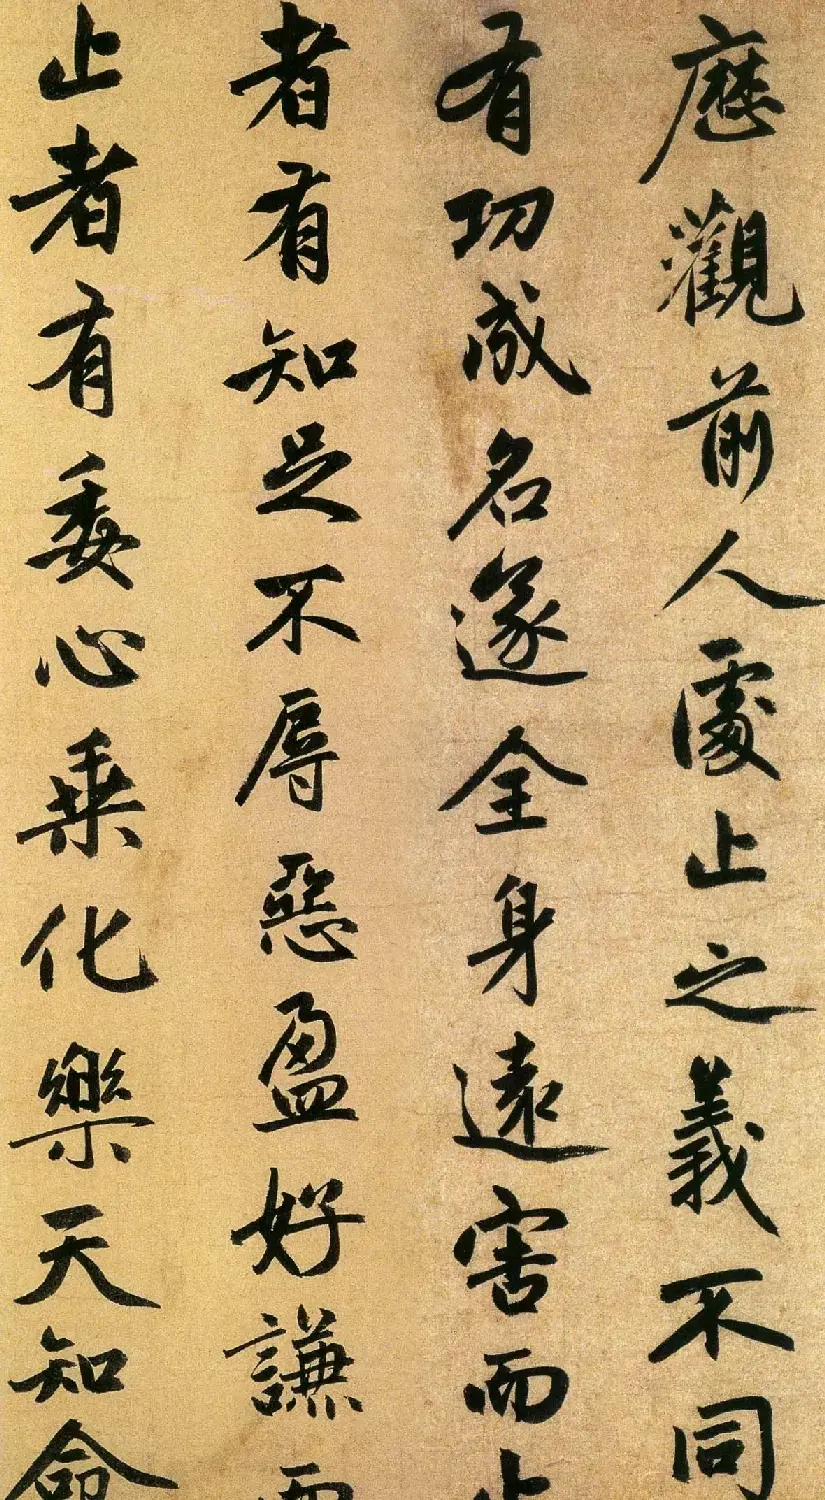 歷觀前人處止之義不同
有功成名遂全身遠害而止
者有知足不辱惡盈好謙而
止者有委心乘化樂天知命